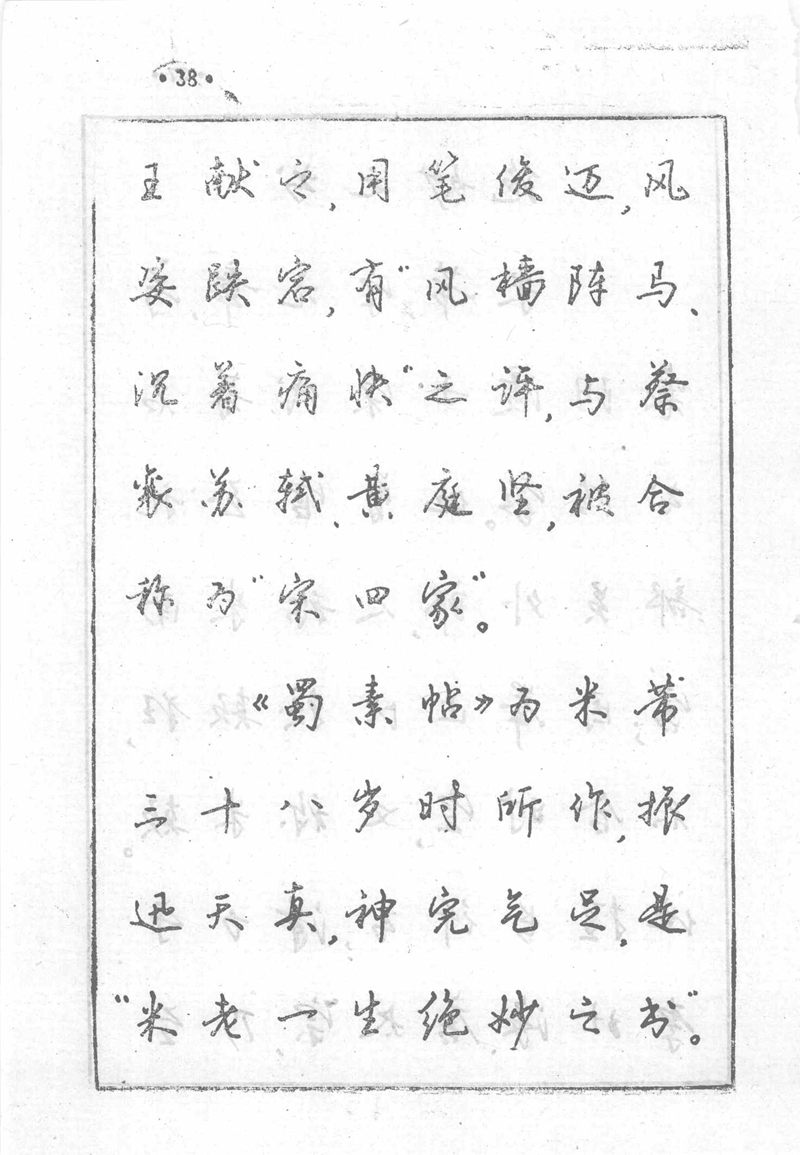 ·38·
王献之,用笔俊迈,风
姿跌宕,有“风樯阵马、
沉着痛快”之评,与蔡
襄苏轼、黄庭坚,被合
称为“宋四家”。
《蜀素帖》为米芾
三十八岁时所作,振
迅天真,神完气足,是
“米老一生绝妙之书”。